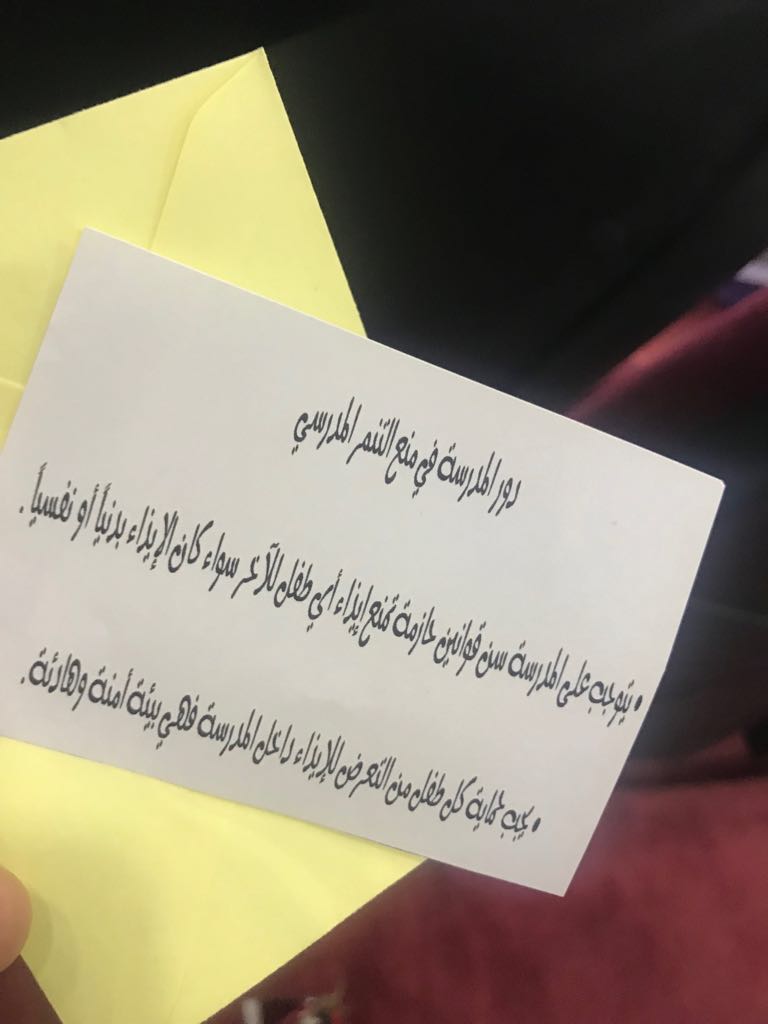 دور المدرسة في منع التنمر المدرسي
• يتوجب على المدرسة سن قوانين حازمة تمنع إيذاء أي طفل للآخر سواء كان الإيذاء بدنياً أو نفسياً .
• يجب حماية كل طفل من التعرض للإيذاء داخل المدرسة فهي بيئة أمنة وهادئة .